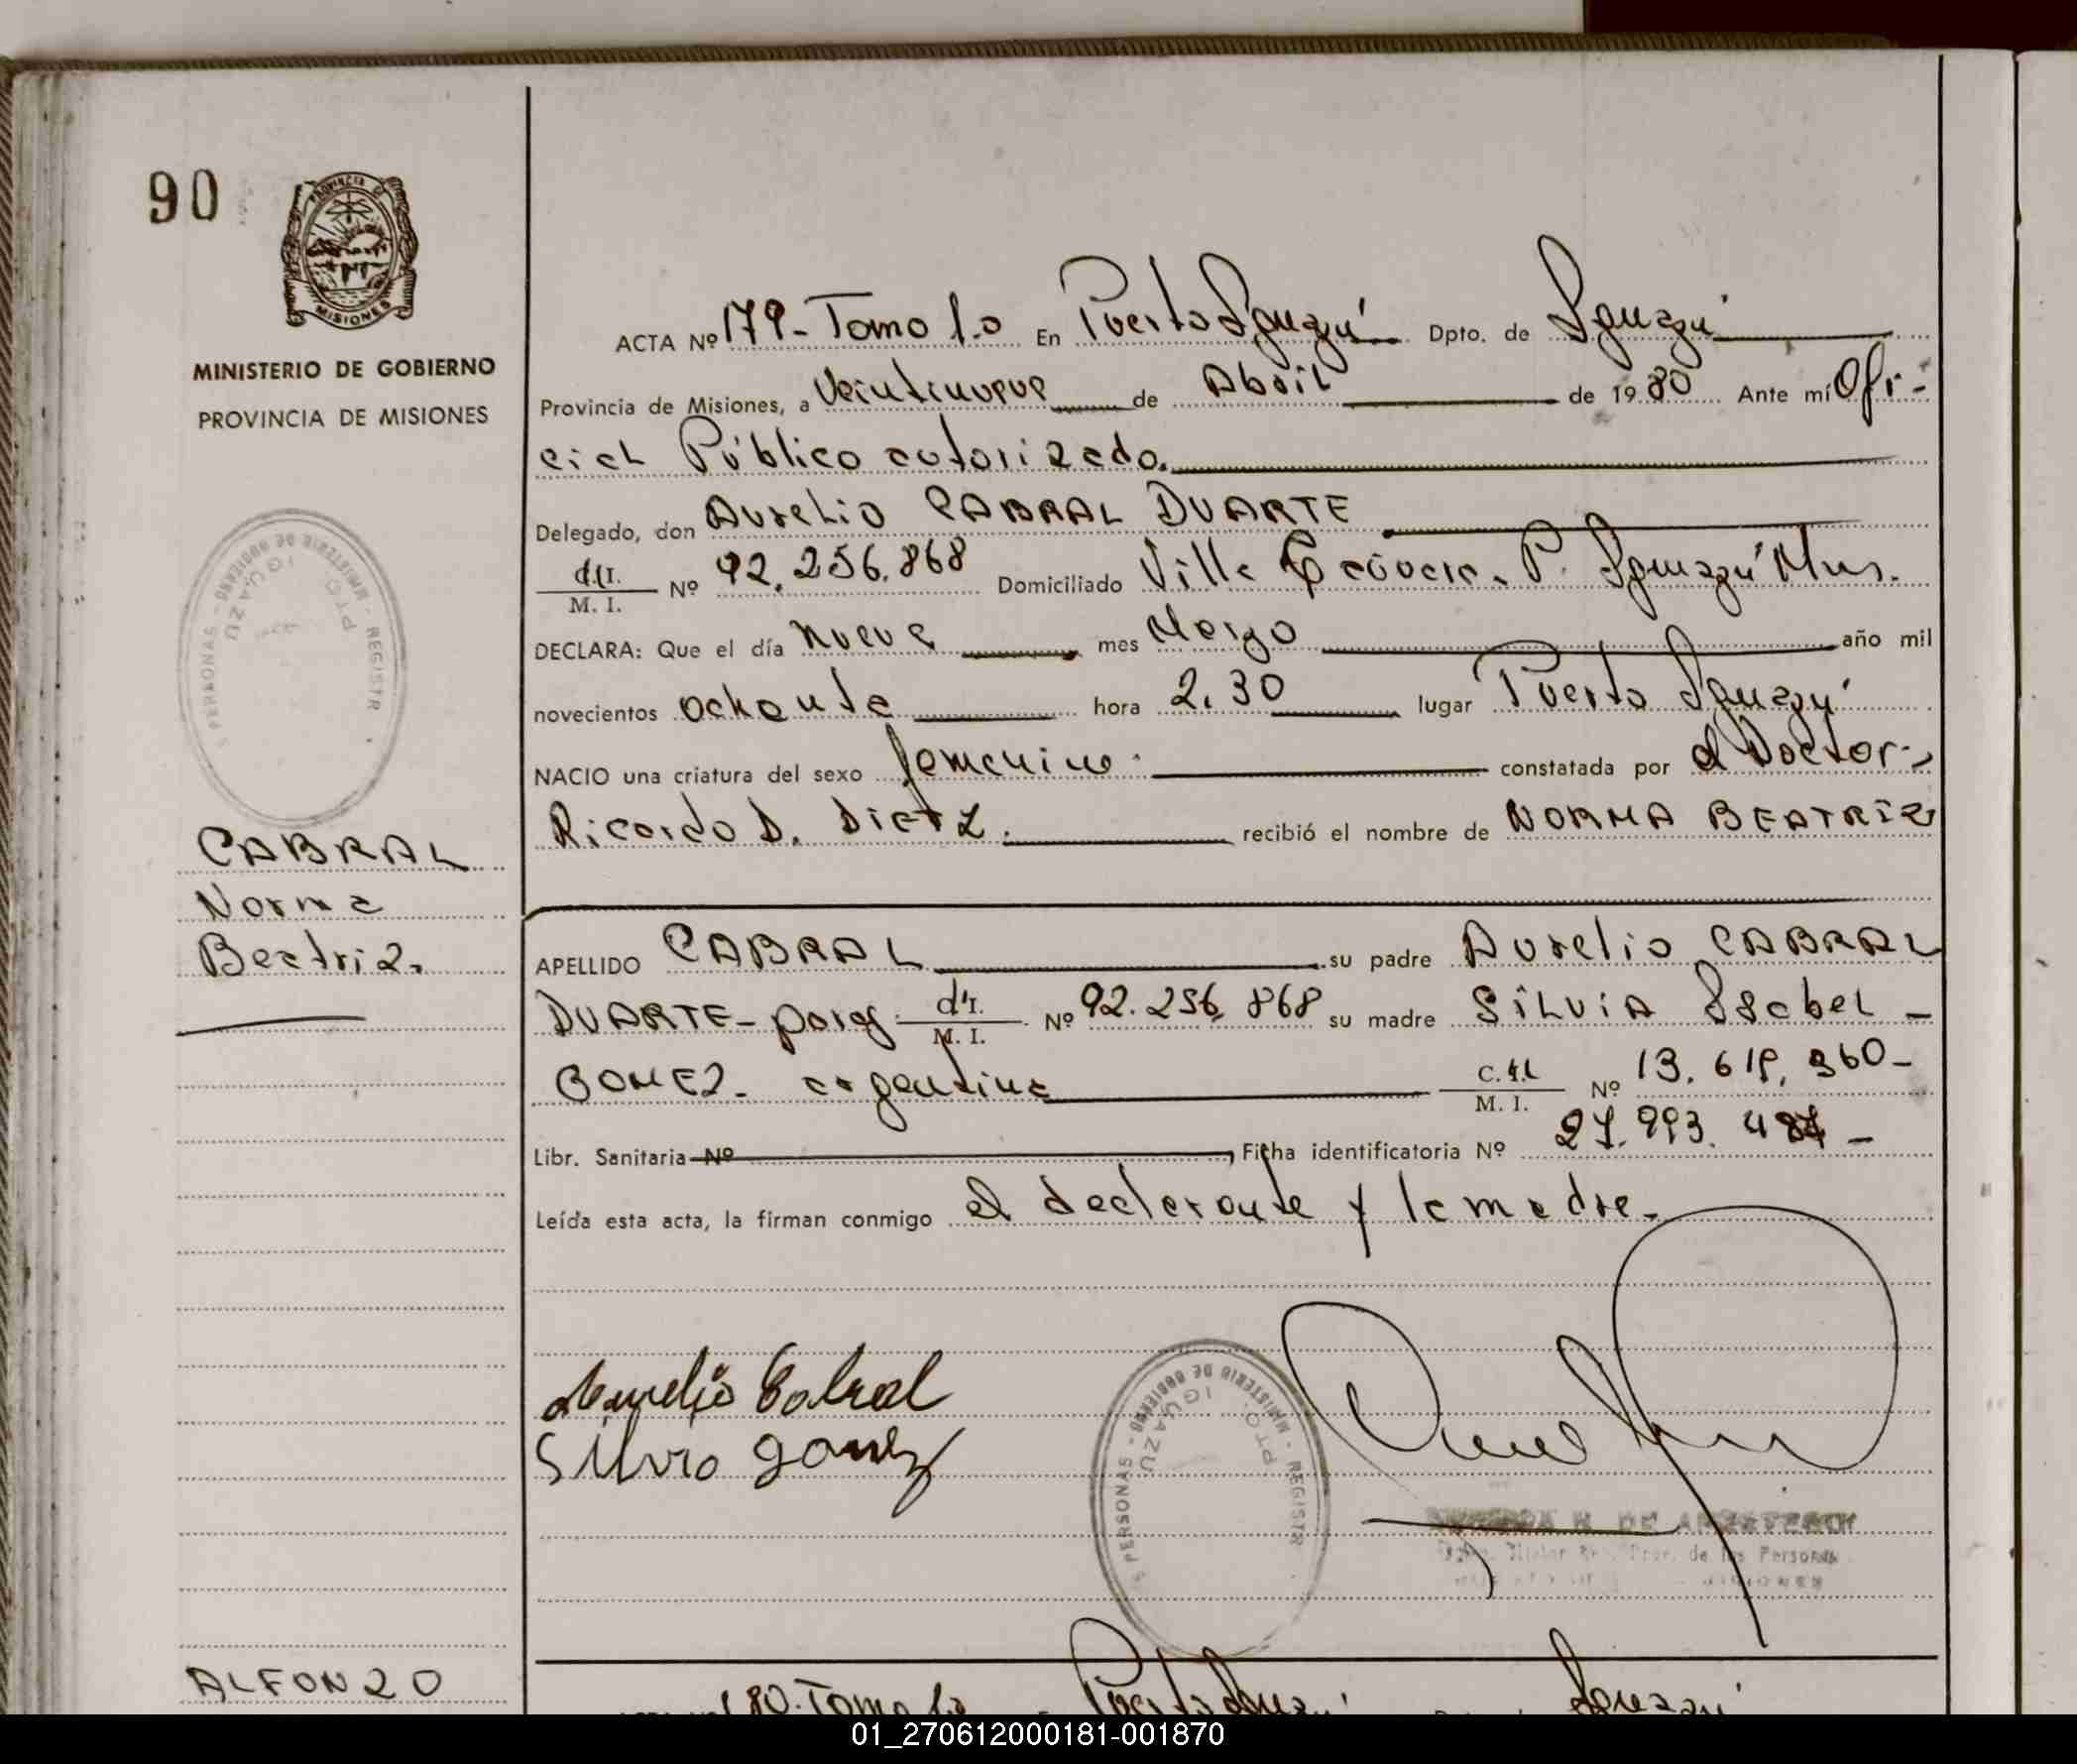 90
PROVINCIA DE
MISIONES
MINISTERIO DE GOBIERNO
PROVINCIA DE MISIONES
PERSONAS - MINISTERIO DE GOBIERNO - REGISTR
PTO. IGUAZU
CABRAL
Norma
Beatriz.
ACTA Nº 179 - Tomo 1.o En Puerto Iguazú Dpto. de Iguazú
Provincia de Misiones, a Veintinueve de Abril de 1980 Ante mí Ofi-
cial Público autorizado.
Delegado, don Aurelio CABRAL DUARTE
d.I. M. I. Nº 92.256.868 Domiciliado Villa P. Iguazú Mnes.
DECLARA: Que el día nueve mes Marzo año mil
novecientos ochenta hora 2.30 lugar Puerto Iguazú
NACIO una criatura del sexo femenino. constatada por el Doctor-
Ricardo D. Dietz. recibió el nombre de NORMA BEATRIZ
APELLIDO CABRAL su padre Aurelio CABRAL
DUARTE - parag. d.I. M. I. Nº 92.256.868 su madre SILVIA Isabel -
GOMEZ - argentina C. I. M. I. Nº 13.619.360-
Libr. Sanitaria Nº , Ficha identificatoria Nº 27.993.487 -
Leída esta acta, la firman conmigo el declarante y la madre.
Aurelio Cabral
Silvia Gomez
PERSONAS - MINISTERIO DE GOBIERNO - REGISTR
PTO. IGUAZU
de las Personas
ALFONZO
180. Tomo 1o Puerto Iguazú Iguazú
01_270612000181-001870